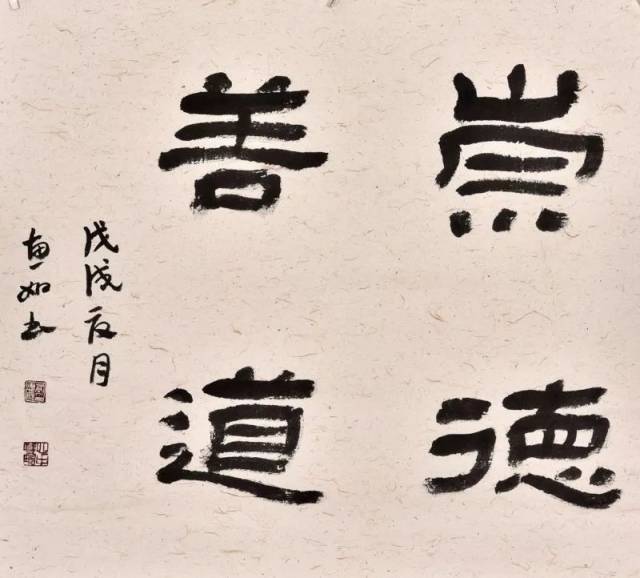 崇德
善道
戊戌夏月
惠如书